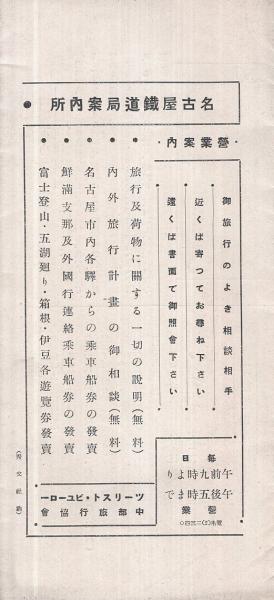 名古屋鐵道局案內所
・營業案內・
御旅行のよき相談相手
近くば寄つてお尋ね下さい
遠くば書面で御照會下さい
● 旅行及荷物に關する一切の説明(無料)
● 內外旅行計畫の御相談(無料)
● 名古屋市內各驛からの乘車船券の發賣
● 鮮滿支那及外國行連絡乘車船券の發賣
● 富士登山・五湖廻り・箱根・伊豆各遊覽券發賣
每日
午前九時より
午後五時まで
營業
ツーリスト・ビユーロー
中部旅行協會